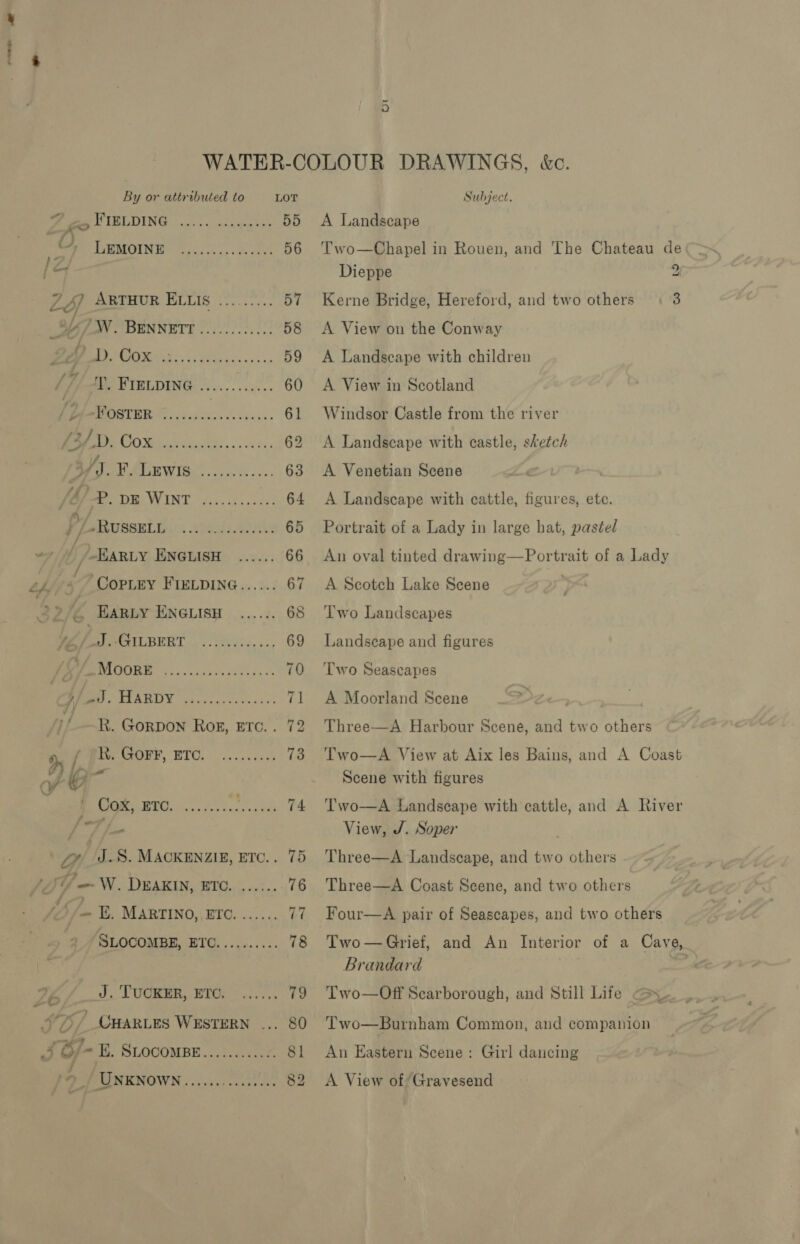 5
WATER-COLOUR DRAWINGS, &c.
By or attributed to LOT Subject.
FIELDING ..... ......... 55 A Landscape
LEMOINE ............... 56 Two—Chapel in Rouen, and The Chateau de
Dieppe 2
ARTHUR ELLIS ... ..... 57 Kerne Bridge, Hereford, and two others 3
W. BENNETT ............ 58 A View on the Conway
D. COX .................. 59 A Landscape with children
T. FIELDING ............ 60 A View in Scotland
FOSTER .................. 61 Windsor Castle from the river
D. COX .................. 62 A Landscape with castle, sketch
J. F. LEWIS ............ 63 A Venetian Scene
P. DE WINT ............ 64 A Landscape with cattle, figures, etc.
RUSSELL ............... 65 Portrait of a Lady in large hat, pastel
EARLY ENGLISH ...... 66 An oval tinted drawing—Portrait of a Lady
COPLEY FIELDING...... 67 A Scotch Lake Scene
EARLY ENGLISH ...... 68 Two Landscapes
J. GILBERT ............ 69 Landscape and figures
MOORE .................. 70 Two Seascapes
J. HARDY ............... 71 A Moorland Scene
R. GORDON ROE, ETC. . 72 Three—A Harbour Scene, and two others
R. GOFF, ETC. ......... 73 Two—A View at Aix les Bains, and A Coast
Scene with figures
COX, ETC. ............... 74 Two—A Landscape with cattle, and A River
View, J. Soper
J. S. MACKENZIE, ETC.. 75 Three—A Landscape, and two others
W. DEAKIN, ETC. ...... 76 Three—A Coast Scene, and two others
E. MARTINO, ETC. ...... 77 Four—A pair of Seascapes, and two others
SLOCOMBE, ETC.......... 78 Two—Grief, and An Interior of a Cave,
Brandard
J. TUCKER, ETC. ...... 79 Two—Off Scarborough, and Still Life
CHARLES WESTERN ... 80 Two—Burnham Common, and companion
E. SLOCOMBE............ 81 An Eastern Scene: Girl dancing
UNKNOWN............... 82 A View of Gravesend